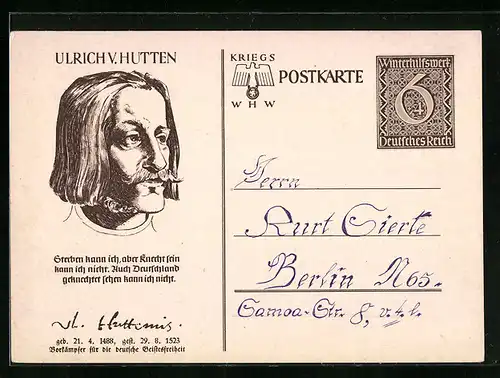 ULRICH V. HUTTEN
Sterben kann ich, aber Knecht sein
kann ich nicht. Auch Deutschland
geknechtet sehen kann ich nicht.
geb. 21. 4. 1488, gest. 29. 8. 1523
Vorkämpfer für die deutsche Geistesfreiheit
KRIEGS
WHW
POSTKARTE
Winterhilfswerk
6+4
Deutsches Reich
Herrn
Kurt Sierte
Berlin N65.
Samoa-Str. 8, v.